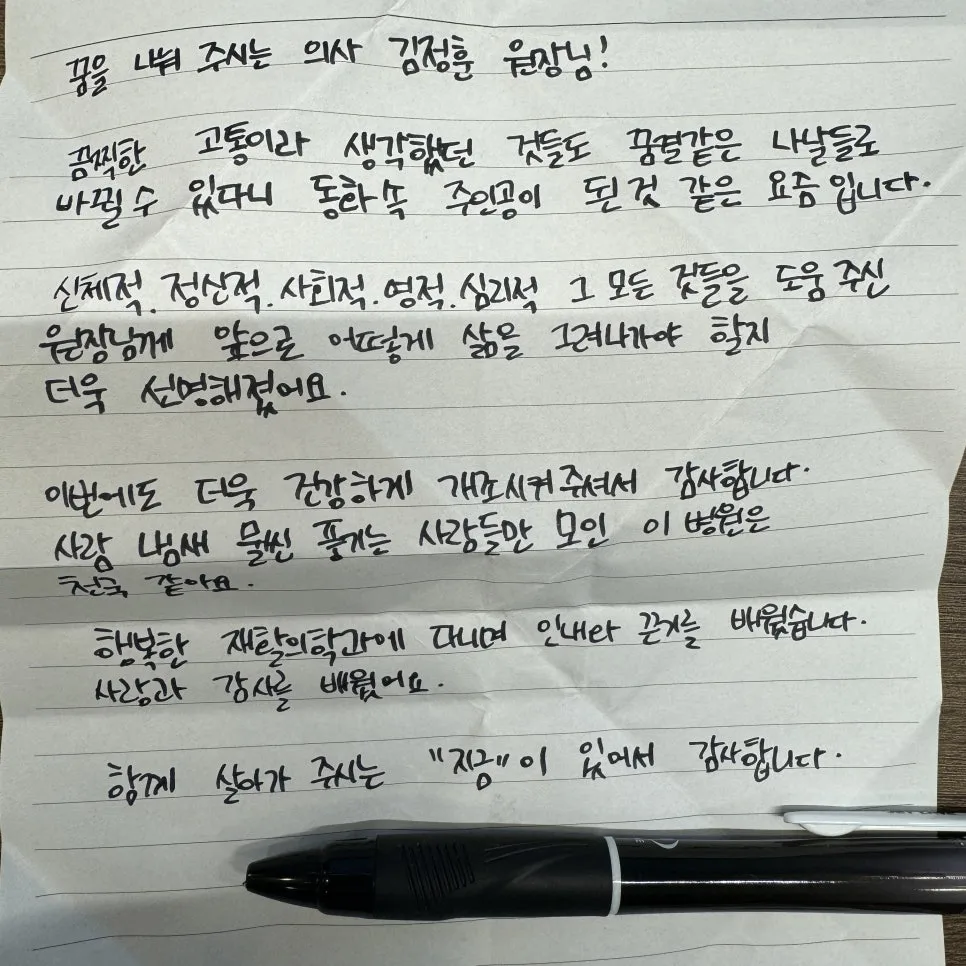 꿈을 나눠 주시는 의사 김정훈 원장님!
끔찍한 고통이라 생각했던 것들도 꿈결같은 나날들로
바뀔 수 있다니 동화 속 주인공이 된 것 같은 요즘입니다.
신체적. 정신적. 사회적. 영적. 심리적 그 모든 것들을 도움 주신
원장님께 앞으로 어떻게 삶을 그려나가야 할지
더욱 선명해졌어요.
이번에도 더욱 건강하게 개조시켜주셔서 감사합니다.
사람 냄새 물씬 풍기는 사람들만 모인 이 병원은
천국 같아요.
행복한 재활의학과에 다니며 인내와 끈기를 배웠습니다.
사랑과 감사를 배웠어요.
함께 살아가 주시는 "지금"이 있어서 감사합니다.